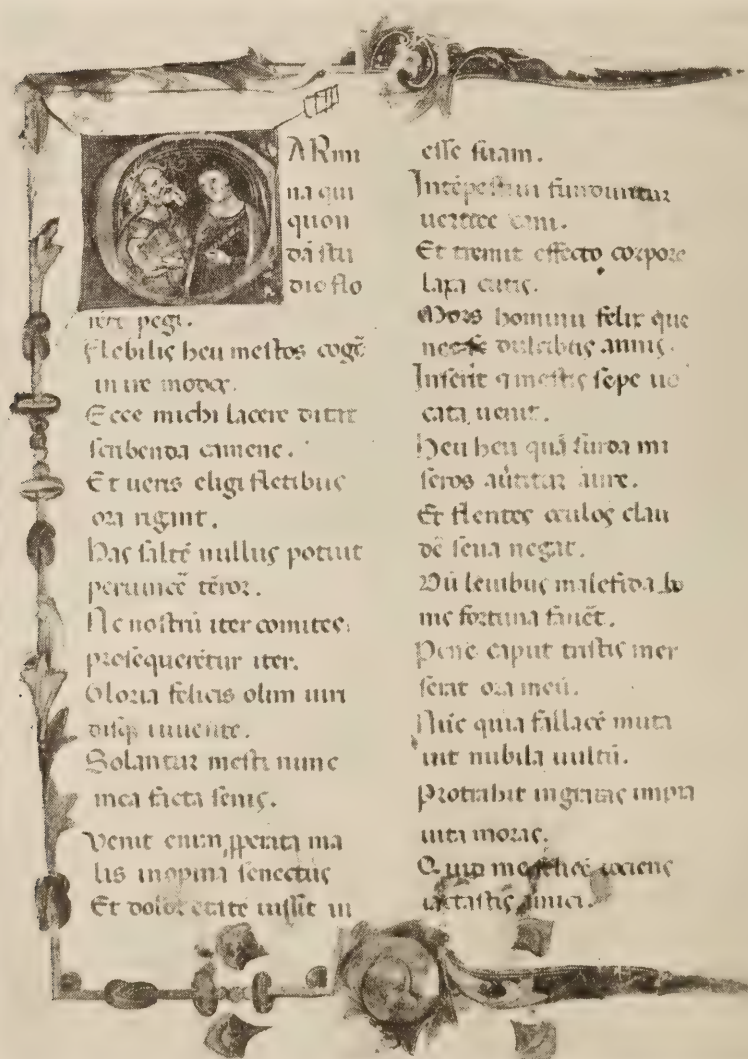 CARmi
na qui
quon
dã stu
dio flo
rete pegi.
Flebilis heu mestos cogẽ
in ire modos.
Ecce michi lacere dictãt
scribenda camene.
Et ueris eligi fletibus
ora rigant.
Has saltẽ nullus potuit
peruincẽ terror.
Ne nostrũ iter comites
prosequeretur iter.
Gloria felicis olim uiri
disq uiuente.
Solantur mesti nunc
mea facta senis.
Venit enim pperata ma
lis inopina senectus
Et dolor etate iussit in
esse suam.
Intẽpestiui funduntur
uertice cani.
Et tremit effecto corpore
laxa cutis.
Mors hominũ felix que
nec se dulcibus annis.
Inserit q mestis sepe uo
cata uenit.
Heu heu quã surda mi
seros auritur aure.
Et flentes oculos clau
dẽ seua negat.
Dũ leuibus malefida bo
nis fortuna fauẽt.
Pene caput tristis mer
serat ora meũ.
Nũc quia fallacẽ muta
uit nubila uultũ.
Protrahit ingratas impia
uita moras.
Quid me felicẽ tociens
iactastis amici.